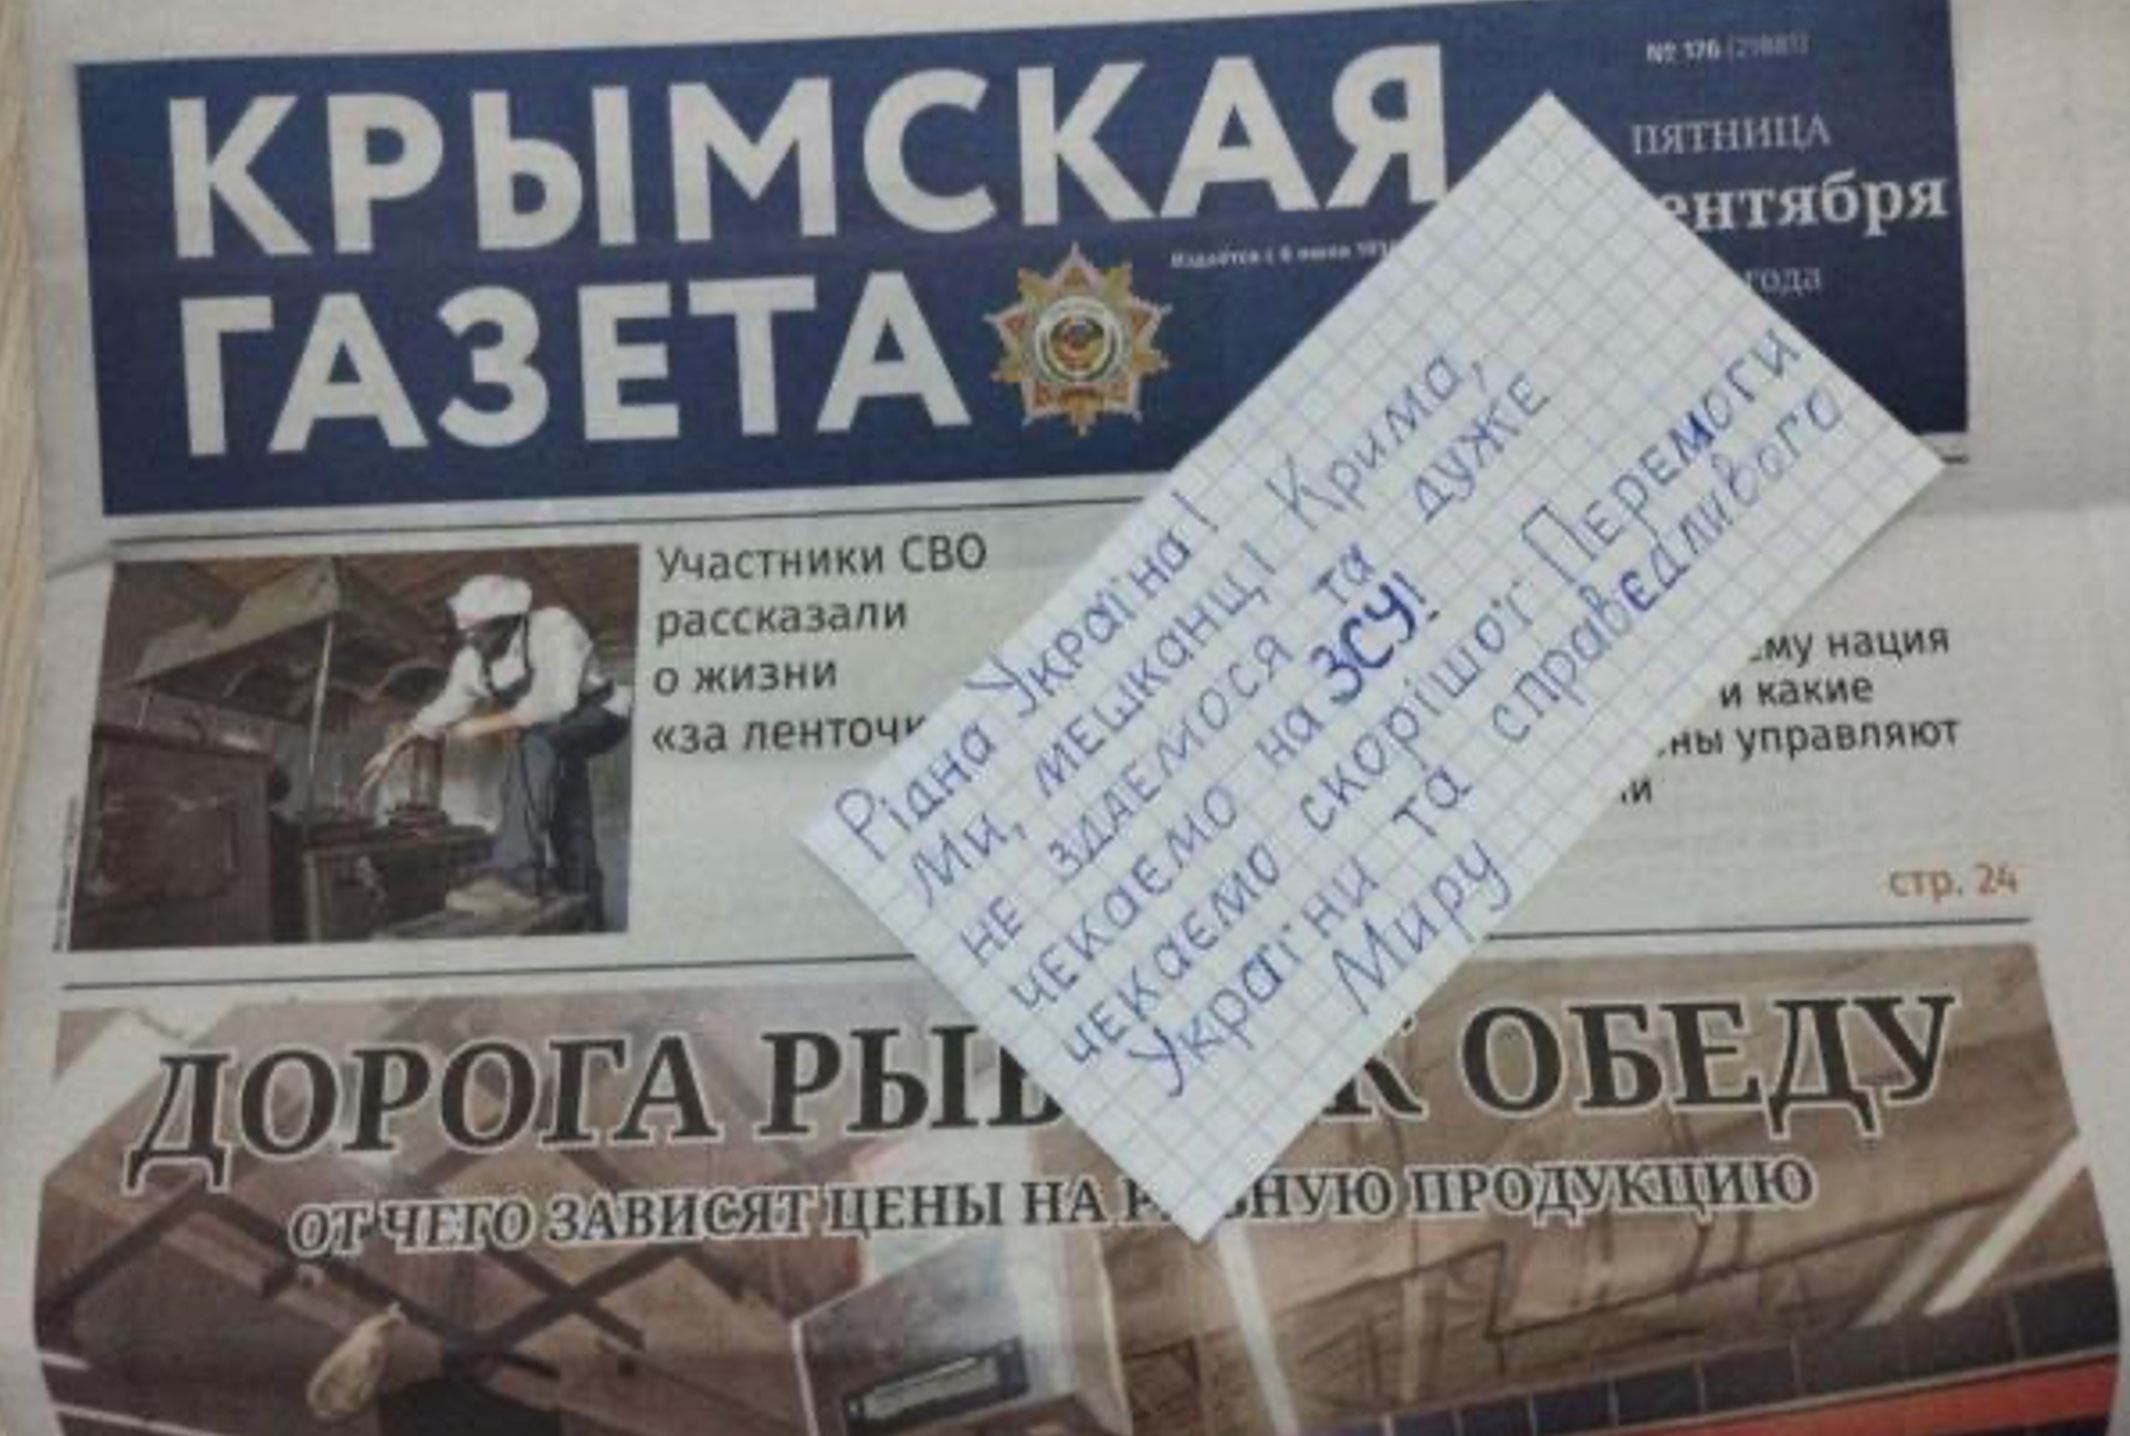 КРЫМСКАЯ
ГАЗЕТА
№ 176 (21881)
ПЯТНИЦА
ентября
года
Издаётся с 6 июня
Участники СВО
рассказали
о жизни
«за ленточк
ему нация
и какие
ны управляют
стр. 24
Рідна Україна!
Ми, мешканці Крима,
не здаемося та дуже
чекаємо на ЗСУ!
чекаємо скорішої Перемоги
України та справєдливого
Миру
ДОРОГА РЫБ К ОБЕДУ
ОТ ЧЕГО ЗАВИСЯТ ЦЕНЫ НА Р БНУЮ ПРОДУКЦИЮ